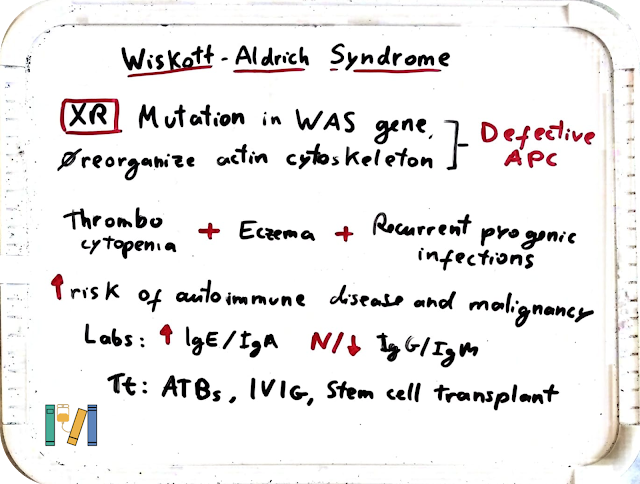 Wiskott-Aldrich Syndrome
XR Mutation in WAS gene, Defective
Øreorganize actin cytoskeleton APC
Thrombo + Eczema + Recurrent pyogenic
cytopenia infections
↑ risk of autoimmune disease and malignancy
Labs: ↑ IgE/IgA N/↓ IgG/IgM
Tt: ATBs, IVIG, Stem cell transplant